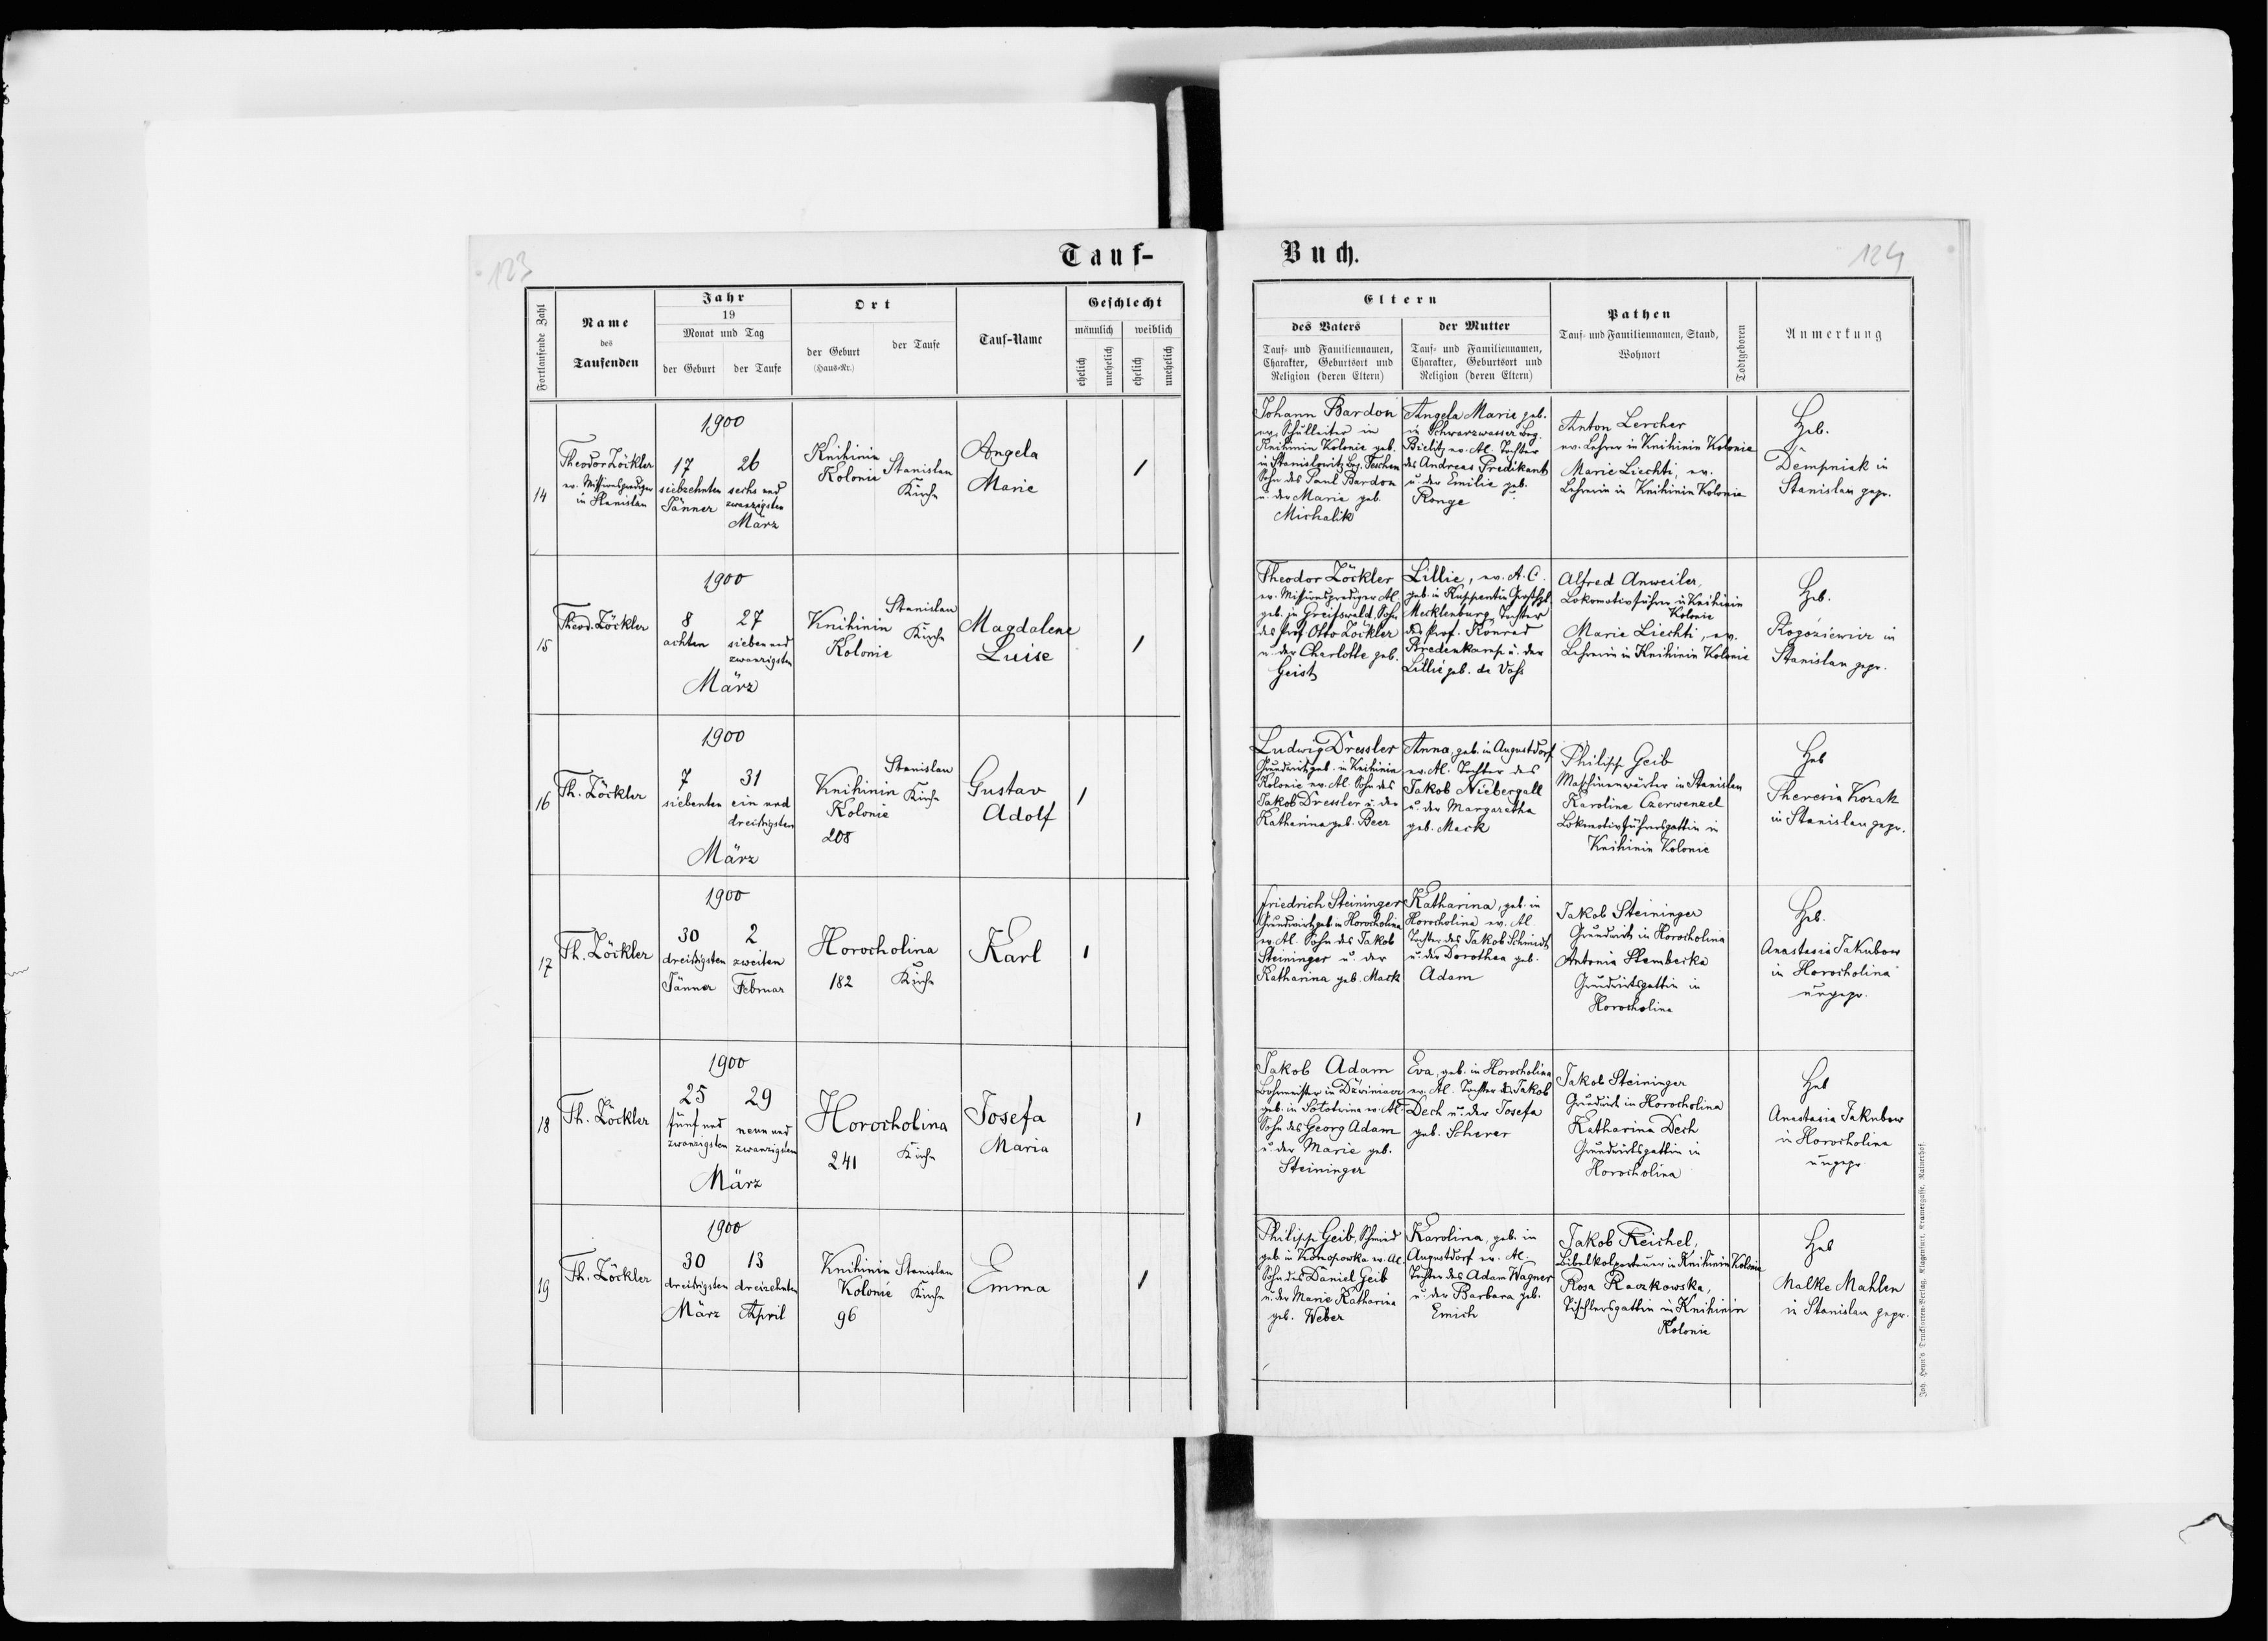 123
Tauf-
Buch.
124
Fortlaufende Zahl
Name
des
Taufenden
Jahr
19
Monat und Tag
der Geburt
der Taufe
Ort
der Geburt
(Haus-Nr.)
der Taufe
Tauf-Name
Geschlecht
männlich
weiblich
ehelich
unehelich
ehelich
unehelich
Eltern
des Vaters
Tauf- und Familiennamen,
Charakter, Geburtsort und
Religion (deren Eltern)
der Mutter
Tauf- und Familiennamen,
Charakter, Geburtsort und
Religion (deren Eltern)
Pathen
Tauf- und Familiennamen, Stand,
Wohnort
Todtgeboren
Anmerkung
14
Theodor Zöckler
ev. Missionsprediger
in Stanislau
1900
17
siebzehnten
Jänner
26
sechs und
zwanzigsten
März
Knihinin
Kolonie
Stanislau
Kirche
Angela
Marie
1
Johann Bardon
ev. Schulleiter in
Knihinin Kolonie geb.
in Stanislowitz Bez. Teschen
Sohn des Paul Bardon
u. der Marie geb.
Michalik
Angela Marie geb.
in Schwarzwasser Bez.
Bielitz ev. Al. Tochter
des Andreas Predikant
u. der Emilie geb.
Ronge
Anton Lercher
ev. Lehrer in Knihinin Kolonie
Marie Liechti, ev.
Lehrerin in Knihinin Kolonie
Heb.
Dempniak in
Stanislau gepr.
15
Theod. Zöckler
1900
8
achten
27
sieben und
zwanzigsten
März
Knihinin
Kolonie
Stanislau
Kirche
Magdalene
Luise
1
Theodor Zöckler
ev. Missionsprediger Al.
geb. in Greifswald, Sohn
des Prof. Otto Zöckler
u. der Charlotte geb.
Geist
Lillie, ev. A. C.
geb. in Ruppentin
Mecklenburg, Tochter
des Prof. Konrad
Bredenkamp u. der
Lillie geb. de Voss
Alfred Anweiler,
Lokomotivführer in Knihinin
Kolonie
Marie Liechti, ev.
Lehrerin in Knihinin Kolonie
Heb.
Rogoziewicz in
Stanislau gepr.
16
Th. Zöckler
1900
7
siebenten
31
ein und
dreißigsten
März
Knihinin
Kolonie
208
Stanislau
Kirche
Gustav
Adolf
1
Ludwig Dressler
Grundwirt geb. in Knihinin
Kolonie ev. Al. Sohn des
Jakob Dressler u. der
Katharina geb. Beer
Anna, geb. in Augustdorf
ev. Al. Tochter des
Jakob Niebergall
u. der Margaretha
geb. Mack
Philipp Geib
Maschinenwärter in Stanislau
Karoline Czerwenzel
Lokomotivführersgattin in
Knihinin Kolonie
Heb
Theresia Kozak
in Stanislau gepr.
17
Th. Zöckler
1900
30
dreißigsten
Jänner
2
zweiten
Februar
Horocholina
182
Kirche
Karl
1
Friedrich Steininger
Grundwirt geb in Horocholina
ev. Al. Sohn des Jakob
Steininger u. der
Katharina geb. Mack
Katharina, geb. in
Horocholina ev. Al.
Tochter des Jakob Schmidt
u. der Dorothea geb.
Adam
Jakob Steininger
Grundwirt in Horocholina
Antonia Stembecka
Grundwirtsgattin in
Horocholina
Heb.
Anastasia Jakubow
in Horocholina
ungepr.
18
Th. Zöckler
1900
25
fünf und
zwanzigsten
29
neun und
zwanzigsten
März
Horocholina
241
Kirche
Josefa
Maria
1
Jakob Adam
Bohrmeister in Dzwiniacz
geb. in Solotwina ev. Al.
Sohn des Georg Adam
u. der Marie geb.
Steininger
Eva, geb. in Horocholina
ev. Al. Tochter d. Jakob
Dech u. der Josefa
geb. Scherer
Jakob Steininger
Grundwirt in Horocholina
Katharina Dech
Grundwirtsgattin in
Horocholina
Heb
Anastasia Jakubow
in Horocholina
ungepr
19
Th. Zöckler
1900
30
dreißigsten
März
13
dreizehnten
April
Knihinin
Kolonie
96
Stanislau
Kirche
Emma
1
Philipp Geib, Schmied
geb. in Konopowka ev. Al.
Sohn des Daniel Geib
u. der Marie Katharina
geb. Weber
Karolina, geb. in
Augustdorf ev. Al.
Tochter des Adam Wagner
u. der Barbara geb.
Emich
Jakob Reichel,
Bibelkolporteur in Knihinin Kolonie
Rosa Raczkowska,
Tischlersgattin in Knihinin
Kolonie
Heb
Malke Mahlen
in Stanislau gepr.
Joh. Heyn's Drucksorten-Verlag, Klagenfurt, Kramergasse, Rainerhof.